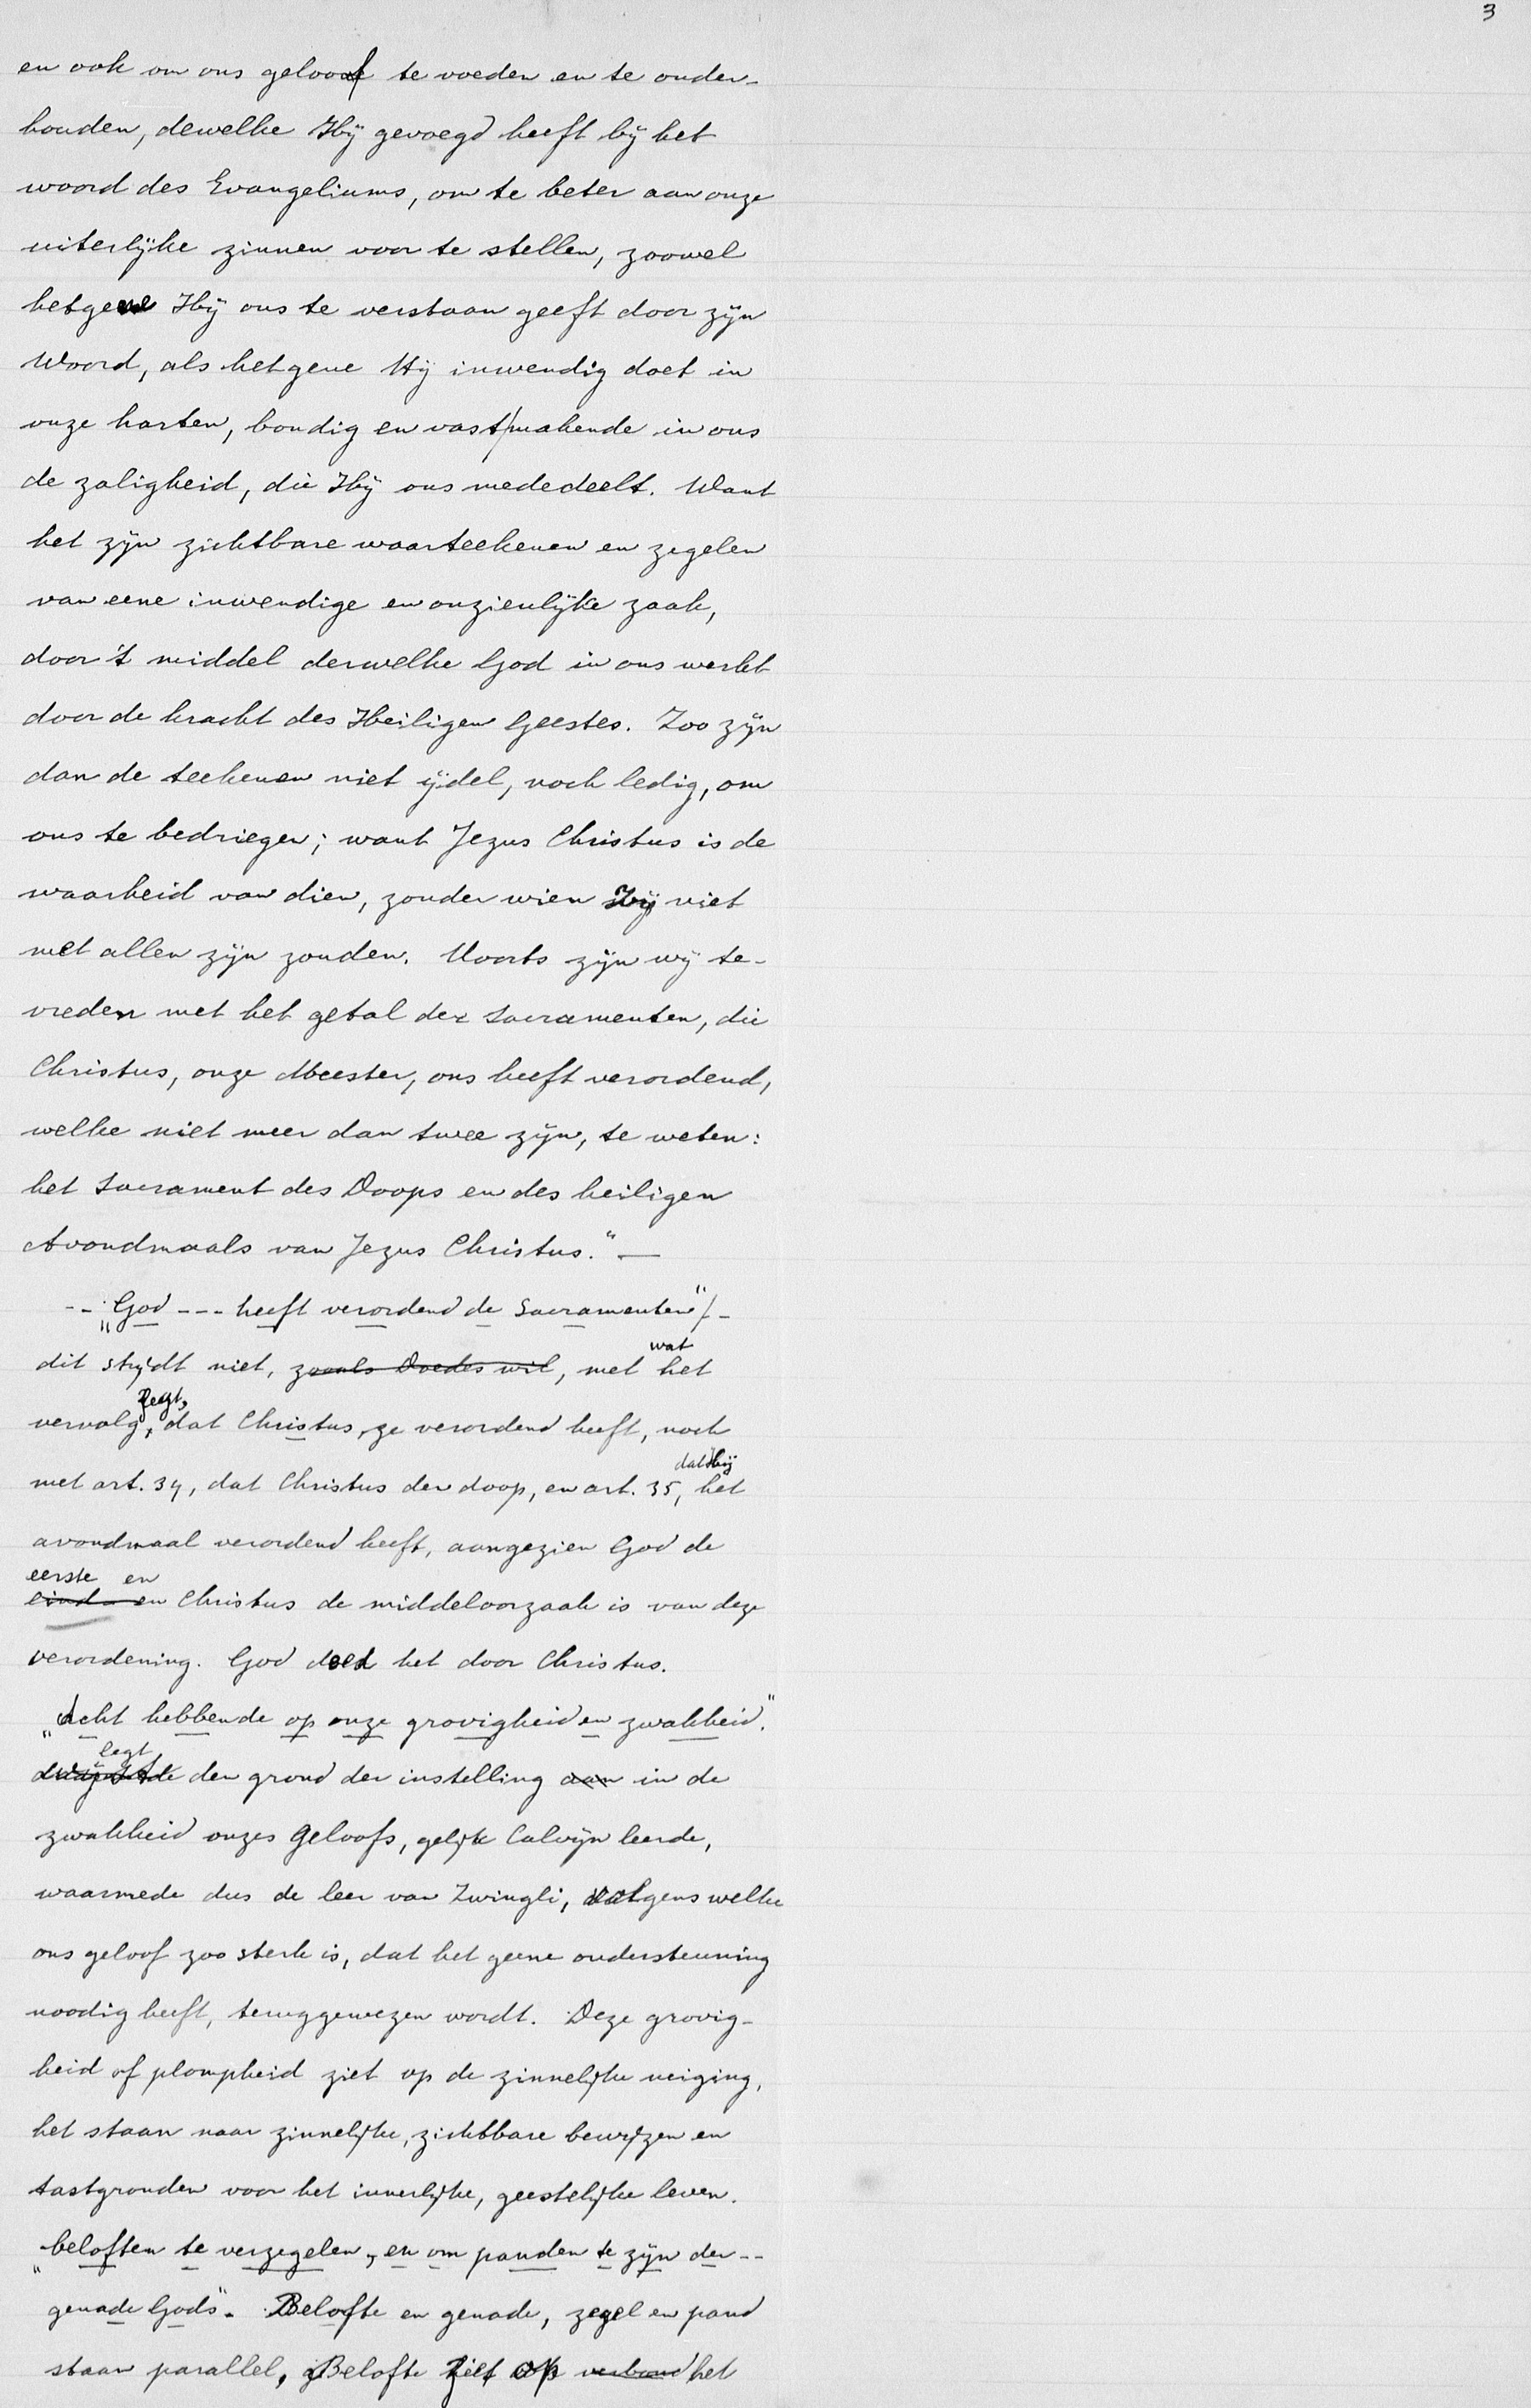 3
en ook om ons geloof te voeden en te onder-
houden, dewelke Hij gevoegd heeft bij het
woord des Evangeliums, om te beter aan onze
uiterlijke zinnen voor te stellen, zoowel
hetgene Hij ons te verstaan geeft door zijn
Woord, als hetgene Hij inwendig doet in
onze harten, bondig en vast makende in ons
de zaligheid, die Hij ons mededeelt. Want
het zijn zichtbare waarteekenen en zegelen
van eene inwendige en onzienlijke zaak,
door 't middel derwelke God in ons werkt
door de kracht des Heiligen Geestes. Zoo zijn
dan de teekenen niet ijdel, noch ledig, om
ons te bedriegen; want Jezus Christus is de
waarheid van dien, zonder wien zij niet
met allen zijn zouden. Voorts zijn wij te-
vreden met het getal der Sacramenten, die
Christus, onze Meester, ons heeft verordend,
welke niet meer dan twee zijn, te weten:
het Sacrament des Doops en des heiligen
Avondmaals van Jezus Christus." —
-- „God --- heeft verordend de Sacramenten" -
dit strijdt niet, zooals Doedes wil, met wat het
vervolg zegt, dat Christus ze verordend heeft, noch
met art. 34, dat Christus den doop, en art. 35, dat Hij het
avondmaal verordend heeft, aangezien God de
eerste en
eind- en Christus de middeloorzaak is van deze
verordening. God deed het door Christus.
„Acht hebbende op onze grovigheid en zwakheid."
legt
den grond der instelling aan in de
zwakheid onzes geloofs, gelijk Calvijn leerde,
waarmede dus de leer van Zwingli, volgens welke
ons geloof zoo sterk is, dat het geene ondersteuning
noodig heeft, teruggewezen wordt. Deze grovig-
heid of plompheid ziet op de zinnelijke neiging,
het staan naar zinnelijke, zichtbare bewijzen en
tastgronden voor het innerlijke, geestelijke leven.
„beloften te verzegelen, en om panden te zijn der --
genade Gods". Belofte en genade, zegel en pand
staan parallel, Belofte ziet op verbond het